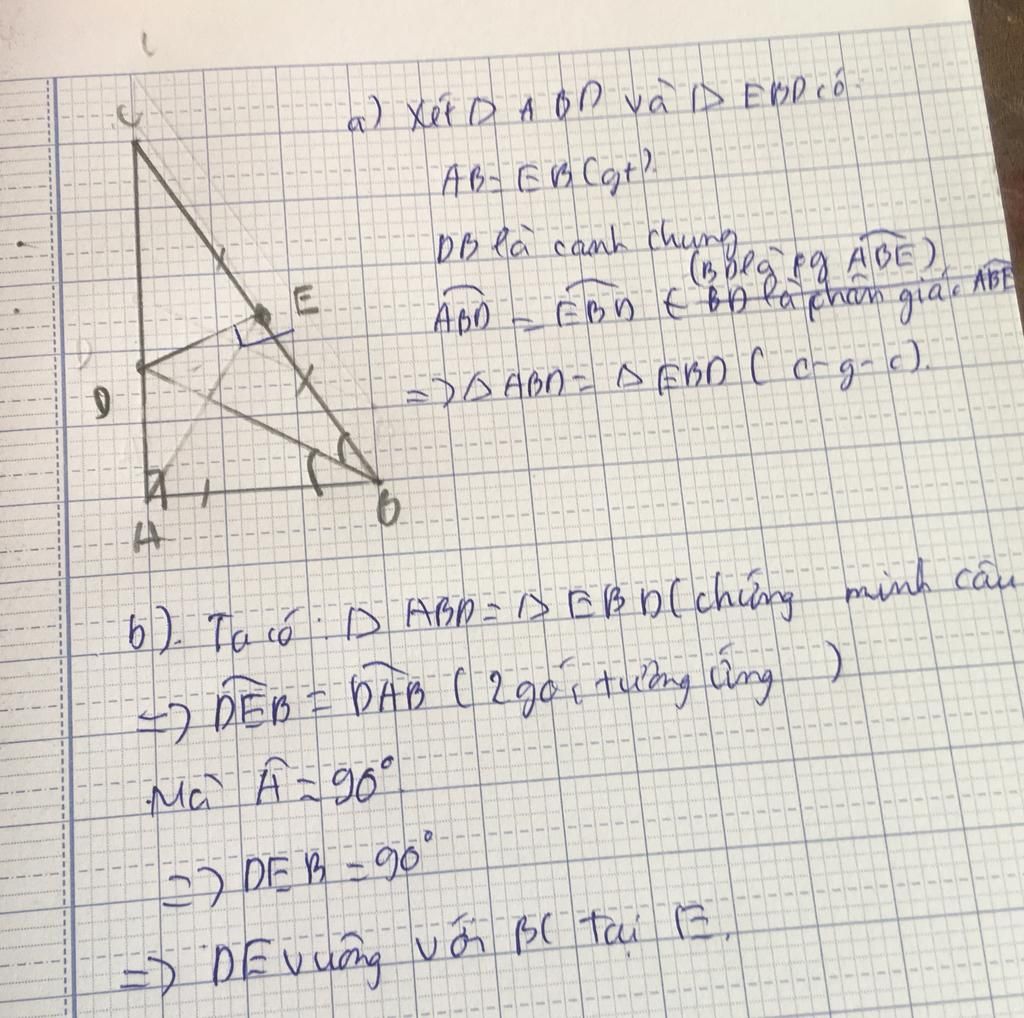 C
E
D
A
B
a) Xét Δ ABD và Δ EBD có:
AB = EB (gt).
DB là cạnh chung
ABE)
ABD = EBD ( BD là phân giác ABE
=> Δ ABD = Δ EBD ( c-g-c).
b). Ta có: Δ ABD = Δ EBD (chứng minh câu
=> DEB = DAB (2 góc tương ứng )
Mà A = 90°
=> DEB = 90°
=> DE vuông với BC tại E.